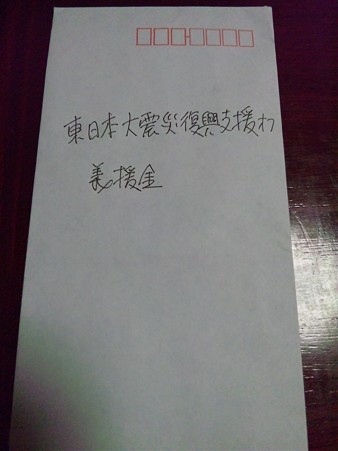 東日本大震災復興支援わ
義援金